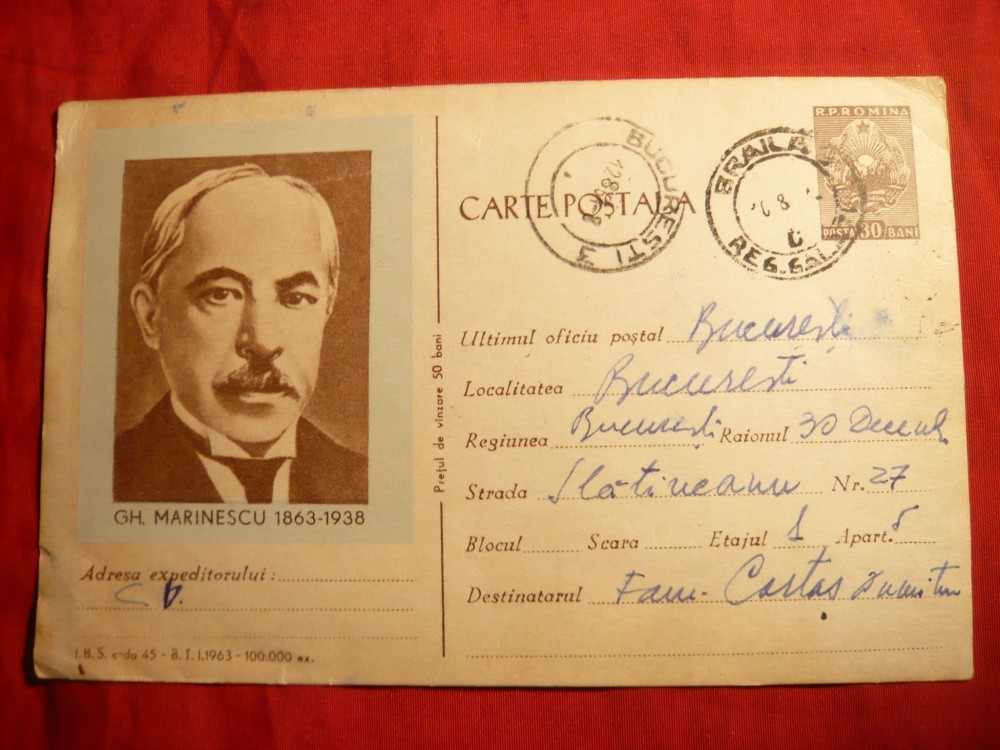 R.P.ROMINA
POSTA 30 BANI
BRAILA
REG. GAL
BUCURESTI 3
CARTE POȘTALA
Ultimul oficiu poștal București
Localitatea București
Regiunea București Raionul 30 Decemb
Strada Slătineanu Nr. 27
Blocul Scara Etajul 1 Apart. 5
Destinatarul Fam. Costas Dumitru
Prețul de vînzare 50 bani
GH. MARINESCU 1863-1938
Adresa expeditorului:
I.B.S. c-da 45 - B.T. I.1963 - 100.000 ex.